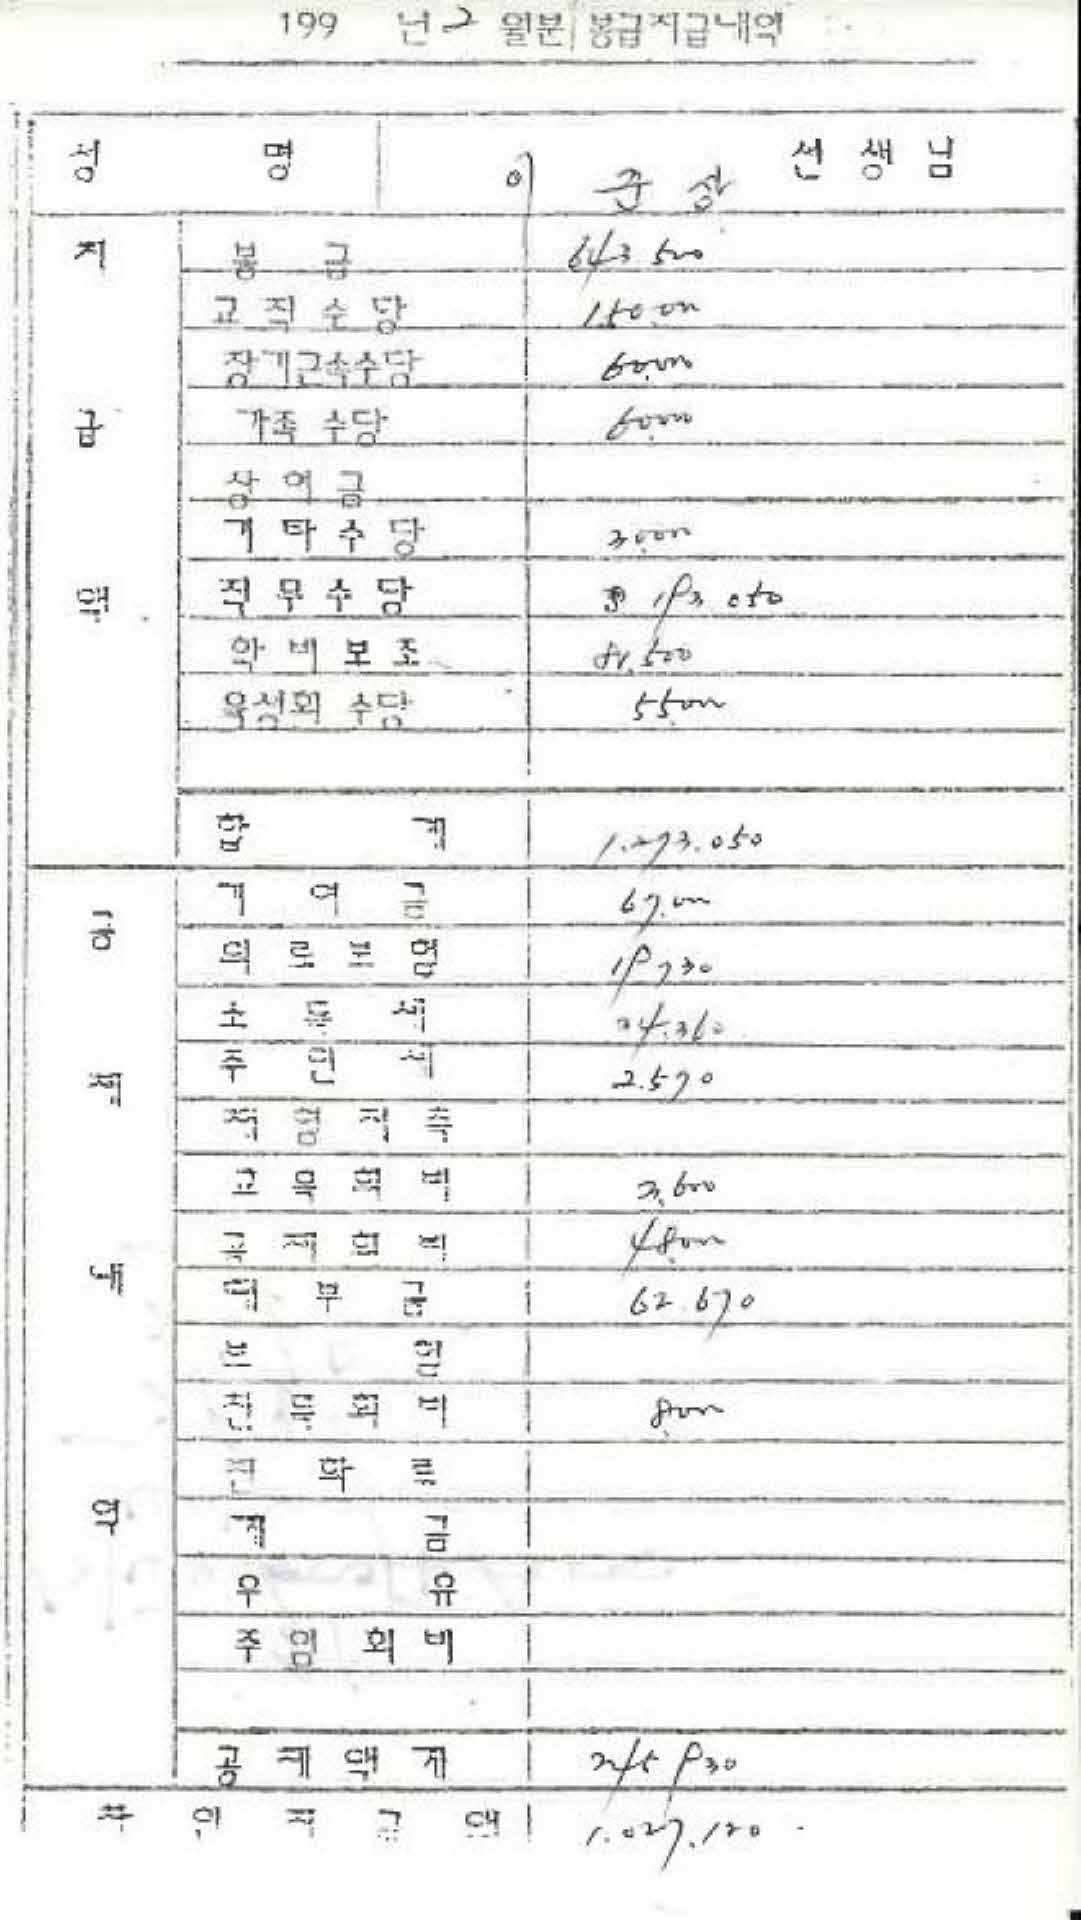 199 년 2 월분 봉급지급내역
성 명 이 준 상 선 생 님
지 급 액
봉 급 643.500
교 직 수 당 150.000
장기근속수당 60.000
가족 수당 60.000
상 여 금
기 타 수 당 30.000
직 무 수 당 193.050
학 비 보 조 81.500
육성회 수당 55.000
합 계 1.273.050
공 제 내 역
기 여 금 67.000
의 료 보 험 19.730
소 득 세 34.360
주 민 세 2.570
3.600
48.000
대 부 금 62.670
보 험
친 목 회 비 8.000
장 학
적 금
우 유
주 임 회 비
공 제 액 계 245.930
차 인 지 급 액 1.027.120